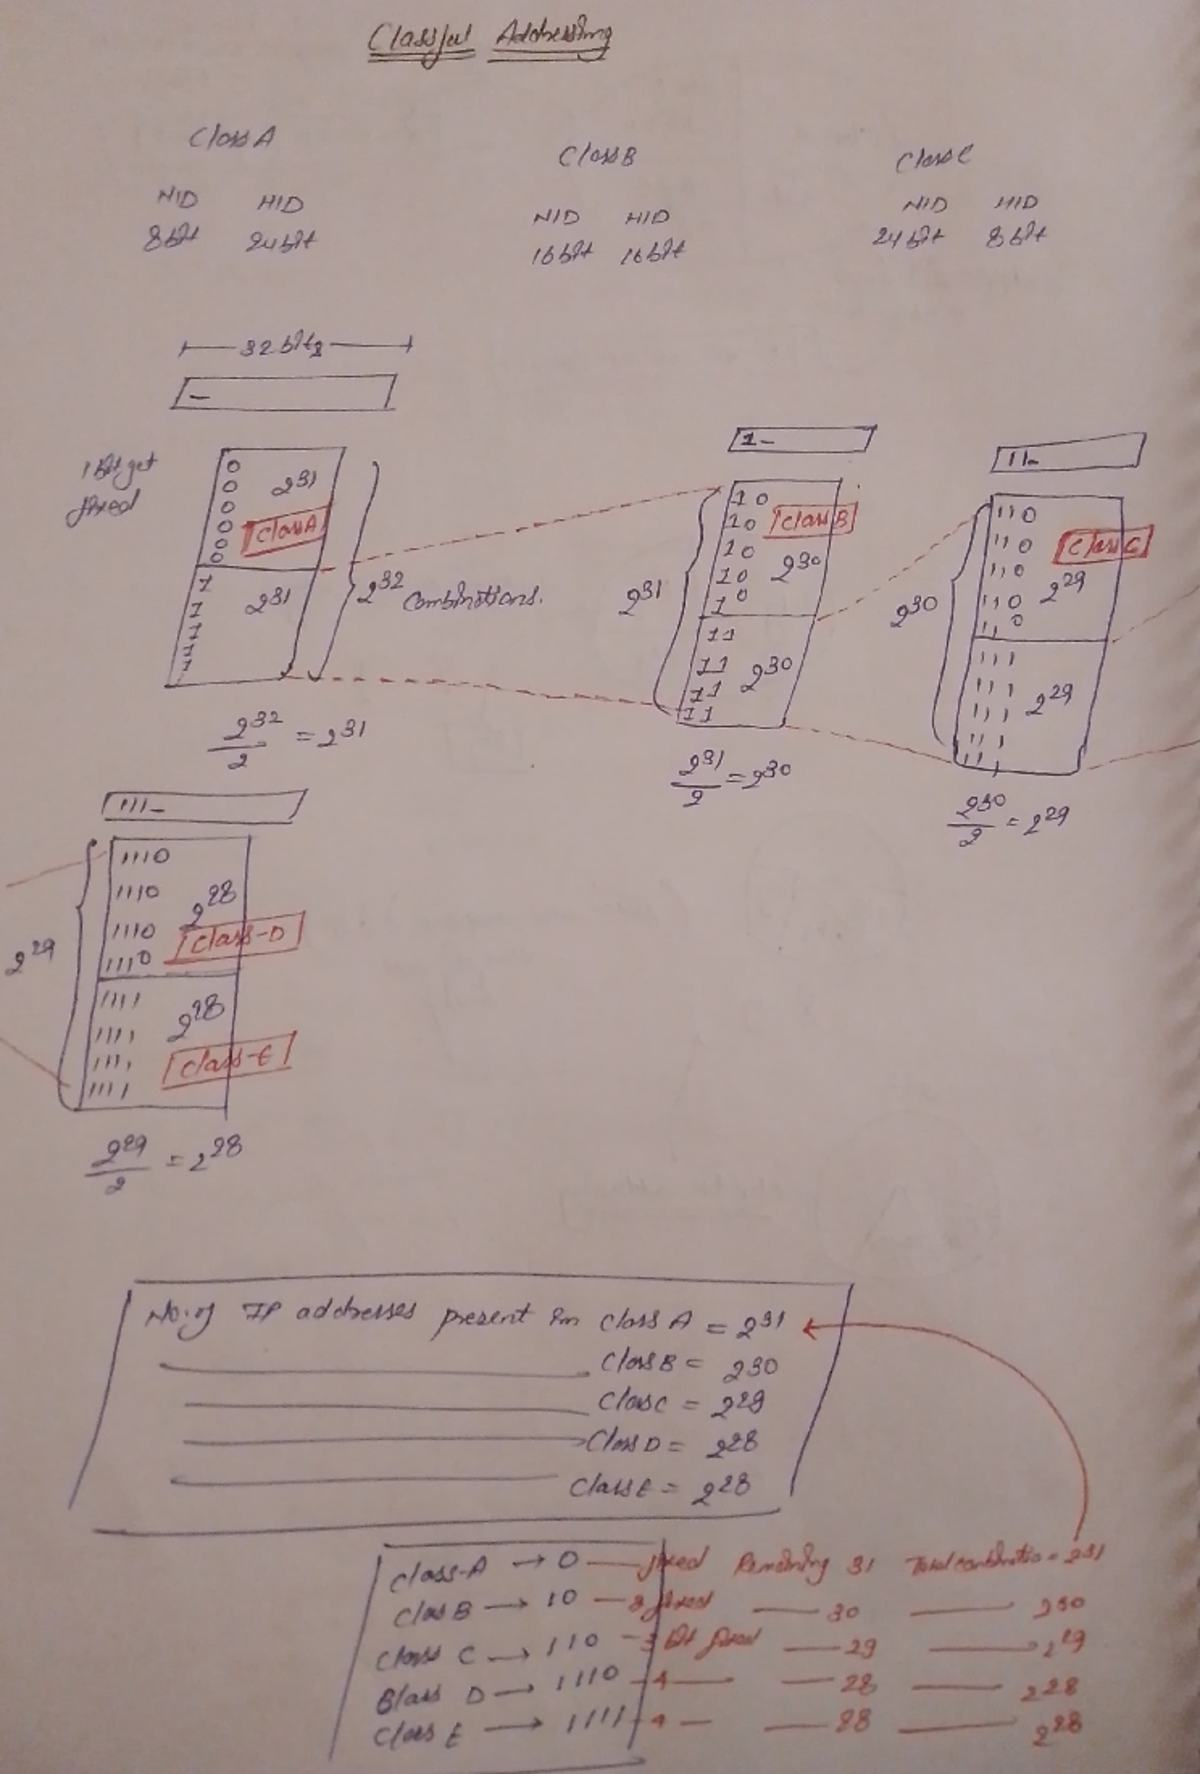 Classful Addressing
Class A
NID HID
8bit 24bit
Class B
NID HID
16bit 16bit
Class C
NID HID
24bit 8bit
32 bits
1 Bit get
fixed
0
0
0
0
0
2^31
Class A
1
1
1
1
1
2^31
2^32 Combinations.
2^32/2 = 2^31
1-
10
10
10
10
10
Class B
2^30
2^31
11
11
11
11
2^30
2^31/2 = 2^30
11-
110
110
110
110
110
Class C
2^29
2^30
111
111
111
111
111
2^29
2^30/2 = 2^29
111-
1110
1110
1110
1110
2^28
Class-D
2^29
1111
1111
1111
1111
2^28
Class-E
2^29/2 = 2^28
No. of IP addresses present in class A = 2^31
Class B = 2^30
Class C = 2^29
Class D = 2^28
Class E = 2^28
Class-A → 0 — fixed Remaining 31 Total combination = 2^31
Clas B → 10 — 2 fixed — 30 — 2^30
Class C → 110 — 3 bit fixed — 29 — 2^29
Class D → 1110 — 4 — — 28 — 2^28
Class E → 1111 — 4 — — 28 — 2^28